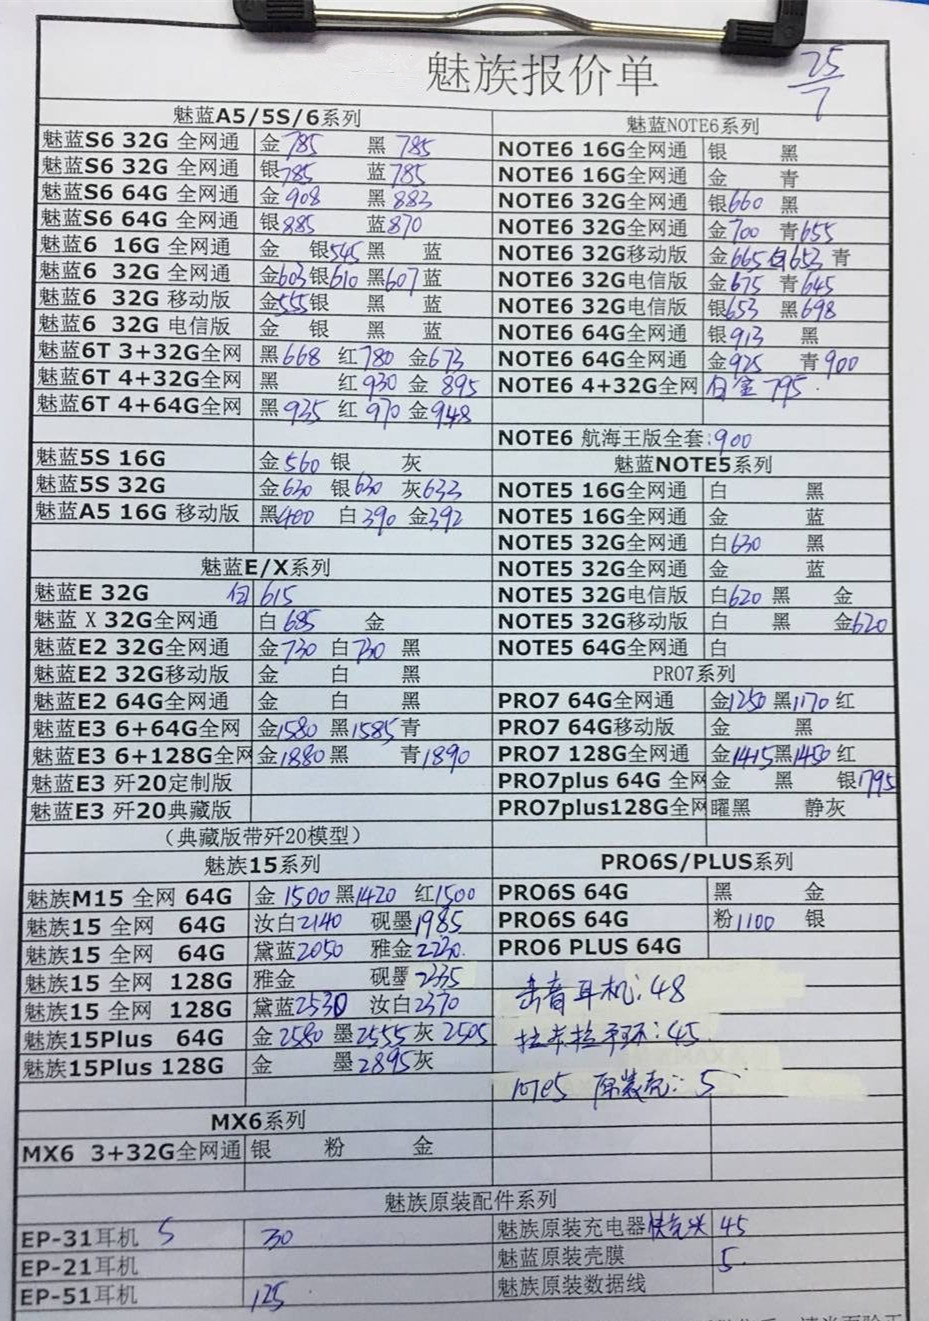 魅族报价单 25/7
魅蓝A5/5S/6系列
魅蓝S6 32G 全网通 金785 黑785
魅蓝S6 32G 全网通 银785 蓝785
魅蓝S6 64G 全网通 金908 黑883
魅蓝S6 64G 全网通 银885 蓝870
魅蓝6 16G 全网通 金 银545 黑 蓝
魅蓝6 32G 全网通 金603 银610 黑607 蓝
魅蓝6 32G 移动版 金555 银 黑 蓝
魅蓝6 32G 电信版 金 银 黑 蓝
魅蓝6T 3+32G全网 黑668 红780 金673
魅蓝6T 4+32G全网 黑 红930 金 895
魅蓝6T 4+64G全网 黑935 红 970 金948
魅蓝5S 16G 金560 银 灰
魅蓝5S 32G 金630 银630 灰633
魅蓝A5 16G 移动版 黑400 白390 金392
魅蓝E/X系列
魅蓝E 32G 白 615
魅蓝 X 32G全网通 白685 金
魅蓝E2 32G全网通 金730 白730 黑
魅蓝E2 32G移动版 金 白 黑
魅蓝E2 64G全网通 金 白 黑
魅蓝E3 6+64G全网 金1580 黑1585 青
魅蓝E3 6+128G全网 金1880 黑 青1890
魅蓝E3 歼20定制版
魅蓝E3 歼20典藏版
（典藏版带歼20模型）
魅族15系列
魅族M15 全网 64G 金 1500 黑1420 红1500
魅族15 全网 64G 汝白2140 砚墨1985
魅族15 全网 64G 黛蓝2050 雅金2230
魅族15 全网 128G 雅金 砚墨2335
魅族15 全网 128G 黛蓝2530 汝白2370
魅族15Plus 64G 金2580 墨2555 灰 2505
魅族15Plus 128G 金 墨2895 灰
MX6系列
MX6 3+32G全网通 银 粉 金
魅蓝NOTE6系列
NOTE6 16G全网通 银 黑
NOTE6 16G全网通 金 青
NOTE6 32G全网通 银660 黑
NOTE6 32G全网通 金700 青655
NOTE6 32G移动版 金665 白653 青
NOTE6 32G电信版 金675 青645
NOTE6 32G电信版 银653 黑698
NOTE6 64G全网通 银913 黑
NOTE6 64G全网通 金925 青900
NOTE6 4+32G全网 白金 795
NOTE6 航海王版全套:900
魅蓝NOTE5系列
NOTE5 16G全网通 白 黑
NOTE5 16G全网通 金 蓝
NOTE5 32G全网通 白630 黑
NOTE5 32G全网通 金 蓝
NOTE5 32G电信版 白620 黑 金
NOTE5 32G移动版 白 黑 金620
NOTE5 64G全网通 白
PRO7系列
PRO7 64G全网通 金1250 黑1170 红
PRO7 64G移动版 金 黑
PRO7 128G全网通 金1415 黑1450 红
PRO7plus 64G 全网 金 黑 银1795
PRO7plus128G全网 曜黑 静灰
PRO6S/PLUS系列
PRO6S 64G 黑 金
PRO6S 64G 粉1100 银
PRO6 PLUS 64G
击音耳机:48
拉卡拉手环:45
note5 原装壳:5
魅族原装配件系列
EP-31耳机 5 30
EP-21耳机
EP-51耳机 125
魅族原装充电器快充头 45
魅蓝原装壳膜 5
魅族原装数据线